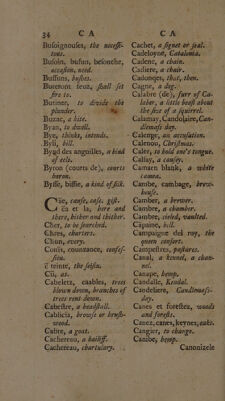 34 C A C A
Busoignouses, the necessi-
tous.
Busoin, busun, besonche,
occasion, need.
Bussuns, bushes.
Buteront feuz, shall set
fire to.
Butiner, to divide the
plunder.
Buzac, a kite.
Byan, to dwell.
Bye, thinks, intends.
Byll, bill.
Byqd des anguilles, a kind
of eels.
Byron (courts de), courts
baron.
Bysse, bissie, a kind of silk.
Cäe, cause, case, gist.
Ca et la, here and
there, hither and thither.
Cher, to be searched.
Chres, charters.
Chun, every.
Conis, countance, confes-
sion.
C teinte, the seisin.
Cii, as.
Cabelets, caables, trees
blown down, branches of
trees rent down.
Cabestre, a headstall.
Cablicia, browse or brush-
wood.
Cabre, a goat.
Cachereau, a bailiff.
Cachereau, chartulary.
Cachet, a signet or seal.
Cadeloyne, Catalonia.
Cadenc, a chain.
Cadiere, a chair.
Cadonques, that, then.
Cagne, a dog.
Calabre (de), furr of Ca-
laber, a little beast about
the size of a squirrel.
Calamay, Candolaire, Can-
dlemass day.
Calenge, an accusation.
Calenou, Christmas.
Cales, to hold one's tongue.
Callay, a causey.
Camarn blank, a white
camra.
Cambe, cambage, brew-
house.
Cambre, a brewer.
Cambre, a chamber.
Cambre, cieled, vaulted.
Campaine, bill.
Campaigne del roy, the
queen consort.
Campestres, pastures.
Canal, a kennel, a chan-
nel.
Canape, hemp.
Candalle, Kendal.
Candeliere, Candlemass-
day.
Canes et forestes, woods
and forests.
Canez, canes, keynes, oaks.
Cangier, to change.
Canibe, hemp.
Canonizele